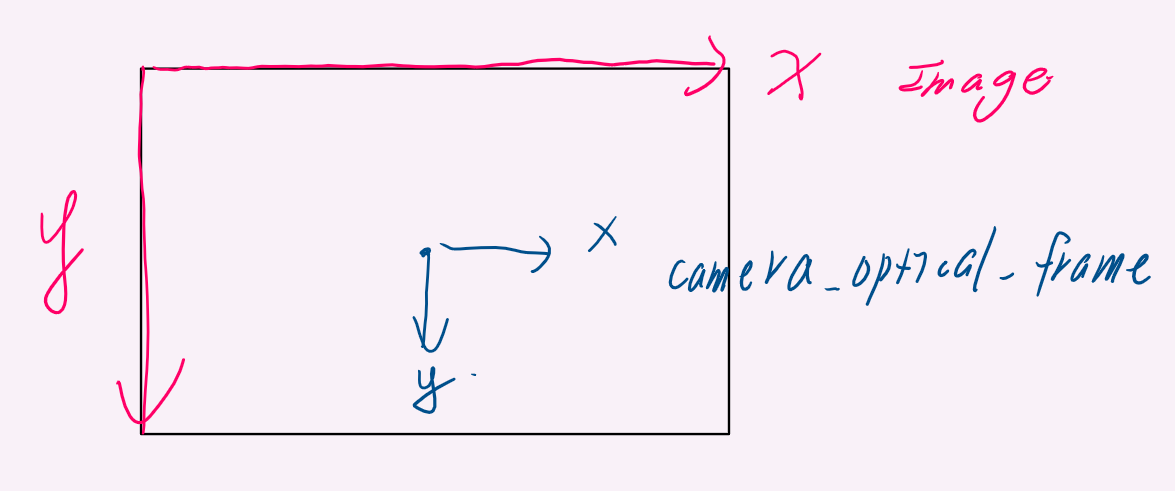 x Image
y
x
camera_optical_frame
y